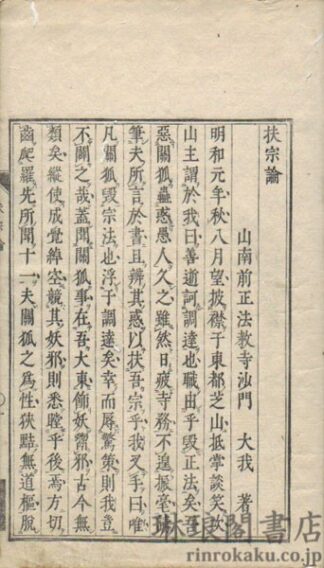 扶宗論
山南前正法教寺沙門　大我　著
明和元年秋八月望披襟于東都芝山抵掌談笑故
山主謂於我曰善逝訶調達也職由乎毀正法矣吾
惡關狐蠱惑愚人久之雖然日疲寺務不遑振毫
筆夫所言於書且辨其惑以扶吾宗乎我叉手曰唯
凡關狐毀宗法也浮于調達矣幸而辱驚策則我豈
不闢之哉蓋聞關狐事在吾大東飾妖鬻邪古今無
類矣縱使成覺綽空競其妖邪則悉瞠乎後焉方切
齒爬羅先所聞十一夫關狐之為性狹黠無道樞脫
琳琅閣書店
rinrokaku.co.jp